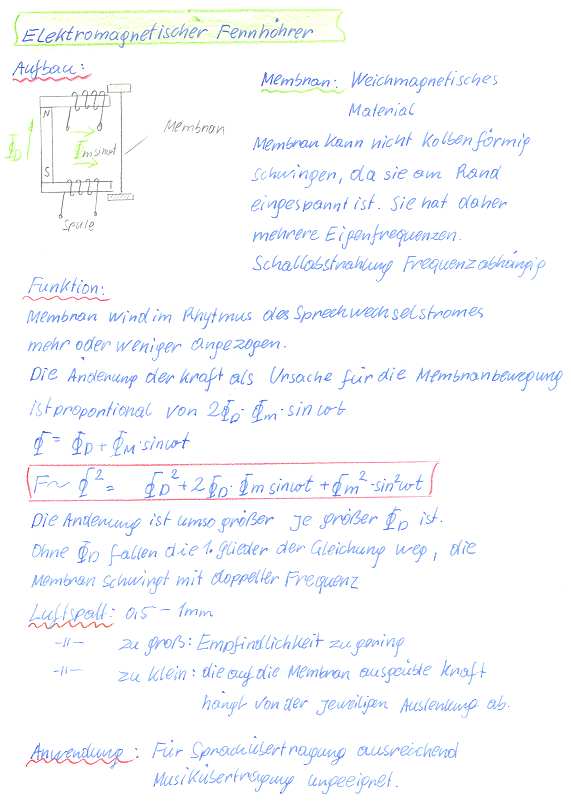 Elektromagnetischer Fennhöhrer
Aufbau:
N
S
Φ_D
Φ_m sinωt
Membran
Spule
Membran: Weichmagnetisches
Material
Membran kann nicht Kolbenförmig
schwingen, da sie am Rand
eingespannt ist. Sie hat daher
mehrere Eigenfrequenzen.
Schallabstrahlung Frequenzabhängig
Funktion:
Membran wind im Rhytmus des Sprechwechselstromes
mehr oder weniger angezogen.
Die Änderung der Kraft als Ursache für die Membranbewegung
ist proportional von 2Φ_D · Φ_m · sin ωt
Φ = Φ_D + Φ_M · sinωt
F ~ Φ² = Φ_D² + 2Φ_D · Φ_m sinωt + Φ_m² · sin²ωt
Die Änderung ist umso größer je größer Φ_D ist.
Ohne Φ_D fallen die 1. Glieder der Gleichung weg, die
Membran schwingt mit doppelter Frequenz
Luftspalt: 0,5 - 1mm
-11- zu groß: Empfindlichkeit zu gering
-11- zu klein: die auf die Membran ausgeübte Kraft
hängt von der jeweiligen Auslenkung ab.
Anwendung: Für Sprachübertragung ausreichend
Musikübertragung ungeeignet.